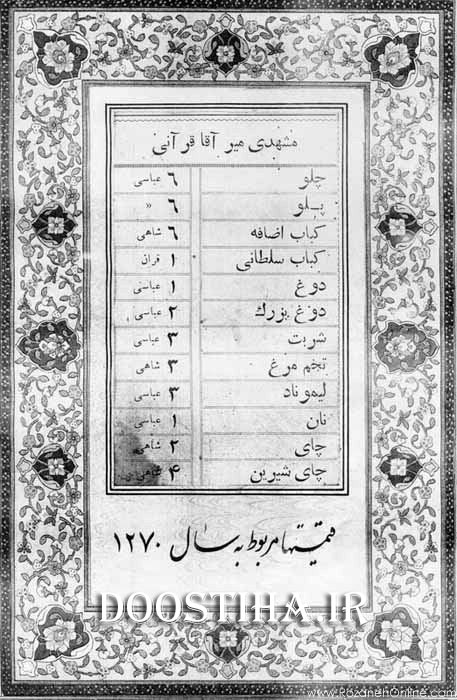 مشهدی میر آقا قرآنی
چلو ۶ عباسی
پلو ۶ «
کباب اضافه ۶ شاهی
کباب سلطانی ۱ قران
دوغ ۱ عباسی
دوغ بزرك ۲ عباسی
شربت ۳ عباسی
تخم مرغ ۳ شاهی
لیموناد ۳ عباسی
نان ۱ عباسی
چای ۲ شاهی
چای شیرین ۴ شاهی
قیمتها مربوط به سال ۱۲۷۰
DOOSTIHA.IR
www.RozanehOnline.com